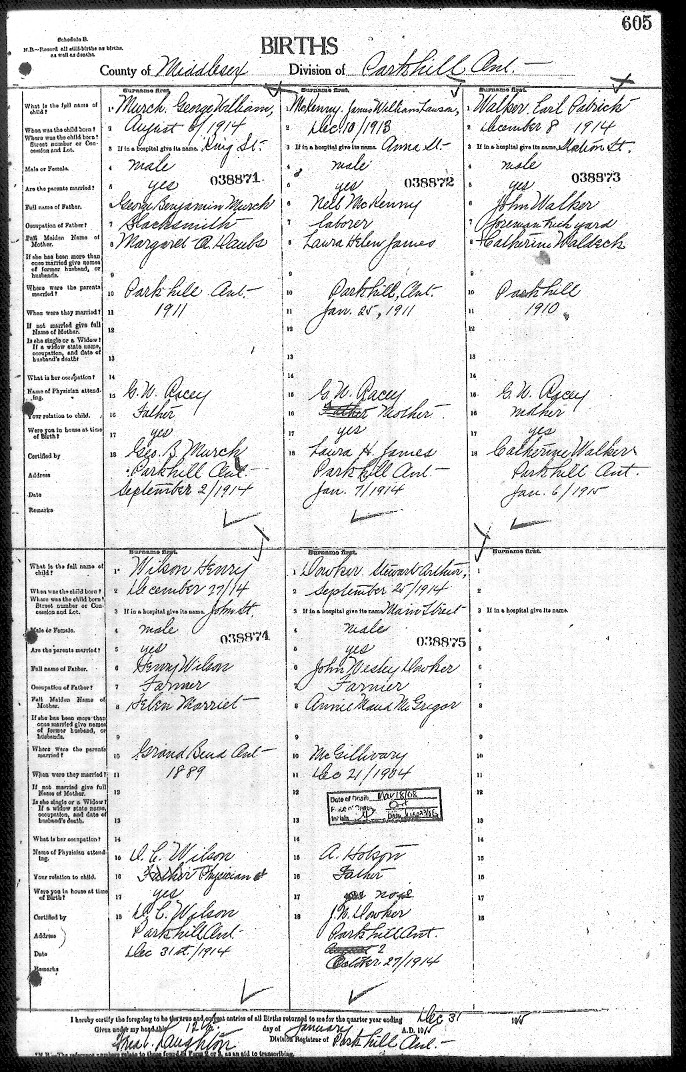 605
Schedule B.
N.B.—Record all still-births as births, as well as deaths.
BIRTHS
County of Middlesex Division of Parkhill Ont.
Surname first. Surname first. Surname first.
What is the full name of child? 1 Murch George William, McKenny James William Lawson, Walker Earl Patrick
When was the child born? 2 August 6/1914 2 Dec 10/1913 2 December 8 1914
Where was the child born? Street number or Concession and Lot. 3 If in a hospital give its name. King St. 3 If in a hospital give its name. Anna St. 3 If in a hospital give its name. Station St.
Male or Female. 4 male 4 male 4 male
038871 038872 038873
Are the parents married? 5 yes 5 yes 5 yes
Full name of Father. 6 George Benjamin Murch 6 Neil McKenny 6 John Walker
Occupation of Father? 7 Blacksmith 7 laborer 7 foreman yard
Full Maiden Name of Mother. 8 Margaret A 8 Laura Helen James 8 Catherine
If she has been more than once married give names of former husband, or husbands. 9 9 9
Where were the parents married? 10 Parkhill Ont 10 Parkhill, Ont. 10 Parkhill
When were they married? 11 1911 11 Jan. 25, 1911 11 1910
If not married give full Name of Mother. 12 12 12
Is she single or a Widow? If a widow state name, occupation, and date of husband's death? 13 13 13
What is her occupation? 14 14 14
Name of Physician attending. 15 G. W. Racey 15 G. W. Racey 15 G. W. Racey
Your relation to child. 16 Father 16 Father Mother 16 mother
Were you in house at time of Birth? 17 yes 17 yes 17 yes
Certified by 18 Geo. B. Murch 18 Laura H. James 18 Catherine Walker
Address Parkhill Ont Parkhill Ont Parkhill Ont.
Date September 2/1914 Jan. 7/1914 Jan. 6/1915
Remarks
Surname first. Surname first. Surname first.
What is the full name of child? 1 Wilson Henry 1 Dowker Stewart Arthur, 1
When was the child born? 2 December 27/14 2 September 25/1914 2
Where was the child born? Street number or Concession and Lot. 3 If in a hospital give its name. John St. 3 If in a hospital give its name. Main Street 3 If in a hospital give its name.
Male or Female. 4 male 4 male 4
038874 038875
Are the parents married? 5 yes 5 yes 5
Full name of Father. 6 Henry Wilson 6 John Wesley Dowker 6
Occupation of Father? 7 Farmer 7 Farmer 7
Full Maiden Name of Mother. 8 8 Annie Maud McGrigor 8
If she has been more than once married give names of former husband, or husbands. 9 9 9
Where were the parents married? 10 Grand Bend Ont 10 McGillivary 10
When were they married? 11 1889 11 Dec 21/1904 11
If not married give full Name of Mother. 12 12 12
Date of Death
Is she single or a Widow? If a widow state name, occupation, and date of husband's death? 13 13 13
What is her occupation? 14 14 14
Name of Physician attending. 15 D. C. Wilson 15 A. Hobson 15
Your relation to child. 16 Father Physician 16 Father 16
Were you in house at time of Birth? 17 yes 17 17
Certified by 18 D. C. Wilson 18 J. W. Dowker 18
Address Parkhill Ont Parkhill Ont.
Date Dec 31st/1914 October 27/1914
Remarks
I hereby certify the foregoing to be the true and correct entries of all Births returned to me for the quarter year ending Dec 31
Given under my hand this 12th day of January A.D. 1915
Laughton Division Registrar of Parkhill Ont.
N.B. The reference numbers relate to those found in Form 2 or 3, as an aid to transcribing.